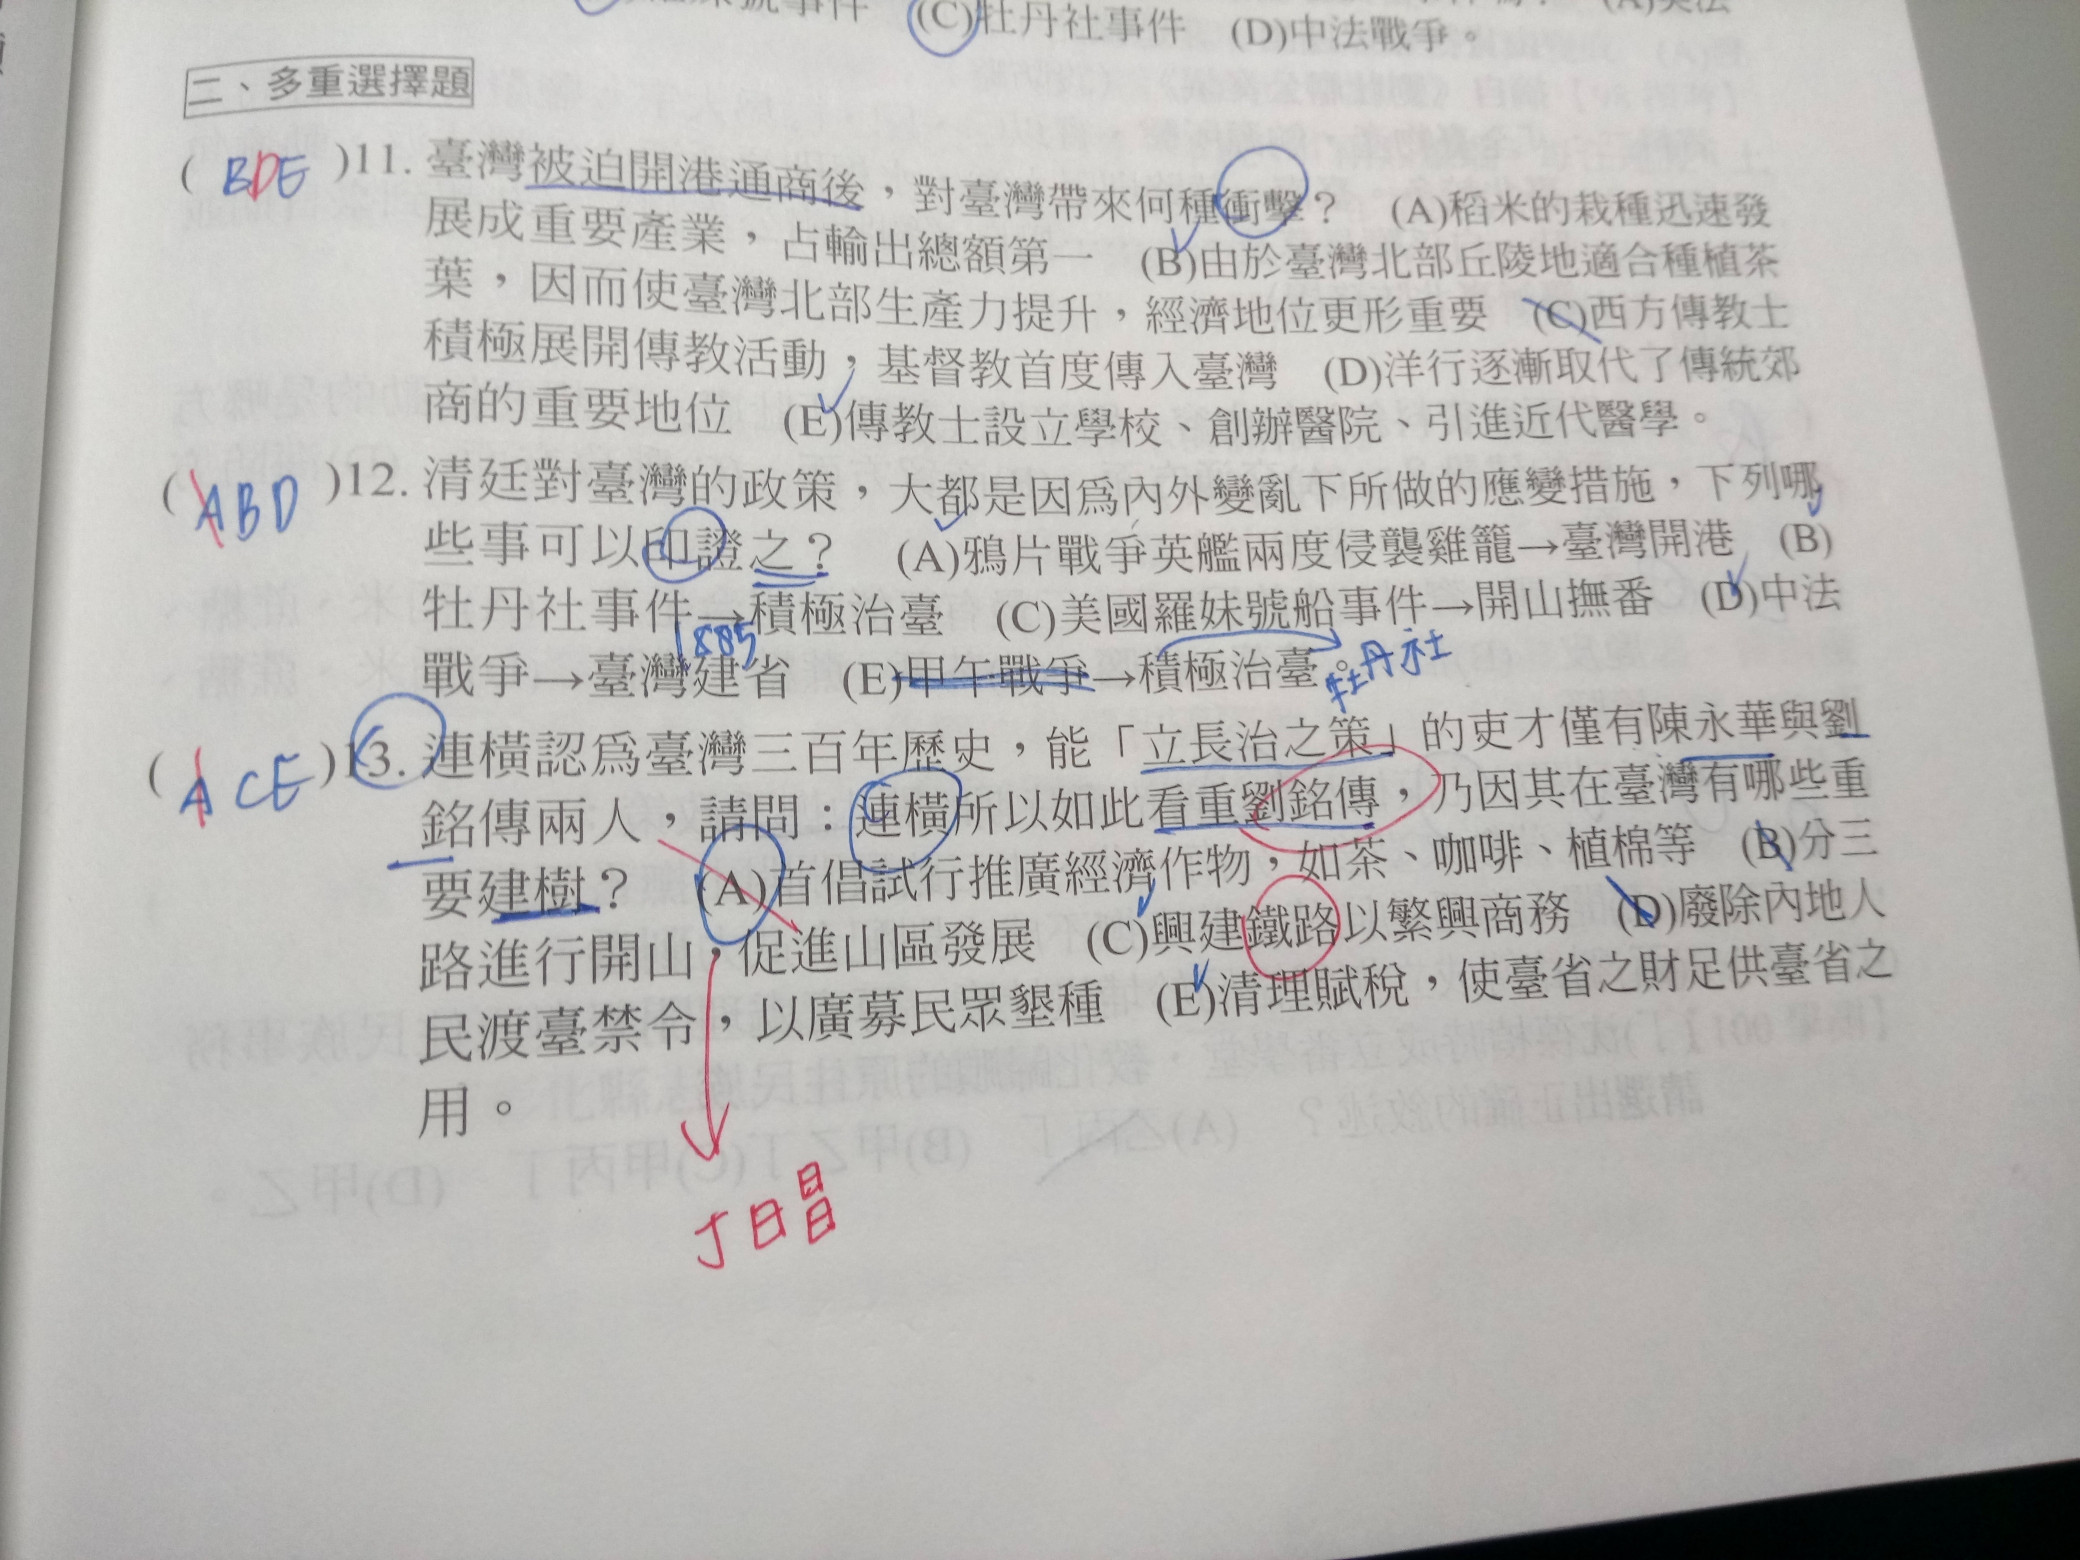 (C)牡丹社事件 (D)中法戰爭。
二、多重選擇題
( BDE )11. 臺灣被迫開港通商後，對臺灣帶來何種衝擊？ (A)稻米的栽種迅速發
展成重要產業，占輸出總額第一 (B)由於臺灣北部丘陵地適合種植茶
葉，因而使臺灣北部生產力提升，經濟地位更形重要 (C)西方傳教士
積極展開傳教活動，基督教首度傳入臺灣 (D)洋行逐漸取代了傳統郊
商的重要地位 (E)傳教士設立學校、創辦醫院、引進近代醫學。
( ABD )12. 清廷對臺灣的政策，大都是因為內外變亂下所做的應變措施，下列哪
些事可以印證之？ (A)鴉片戰爭英艦兩度侵襲雞籠→臺灣開港 (B)
牡丹社事件→積極治臺 (C)美國羅妹號船事件→開山撫番 (D)中法
1885
戰爭→臺灣建省 (E)甲午戰爭→積極治臺。牡丹社
( ACE )13. 連橫認為臺灣三百年歷史，能「立長治之策」的吏才僅有陳永華與劉
銘傳兩人，請問：連橫所以如此看重劉銘傳，乃因其在臺灣有哪些重
要建樹？ (A)首倡試行推廣經濟作物，如茶、咖啡、植棉等 (B)分三
路進行開山，促進山區發展 (C)興建鐵路以繁興商務 (D)廢除內地人
民渡臺禁令，以廣募民眾墾種 (E)清理賦稅，使臺省之財足供臺省之
用。
丁日昌